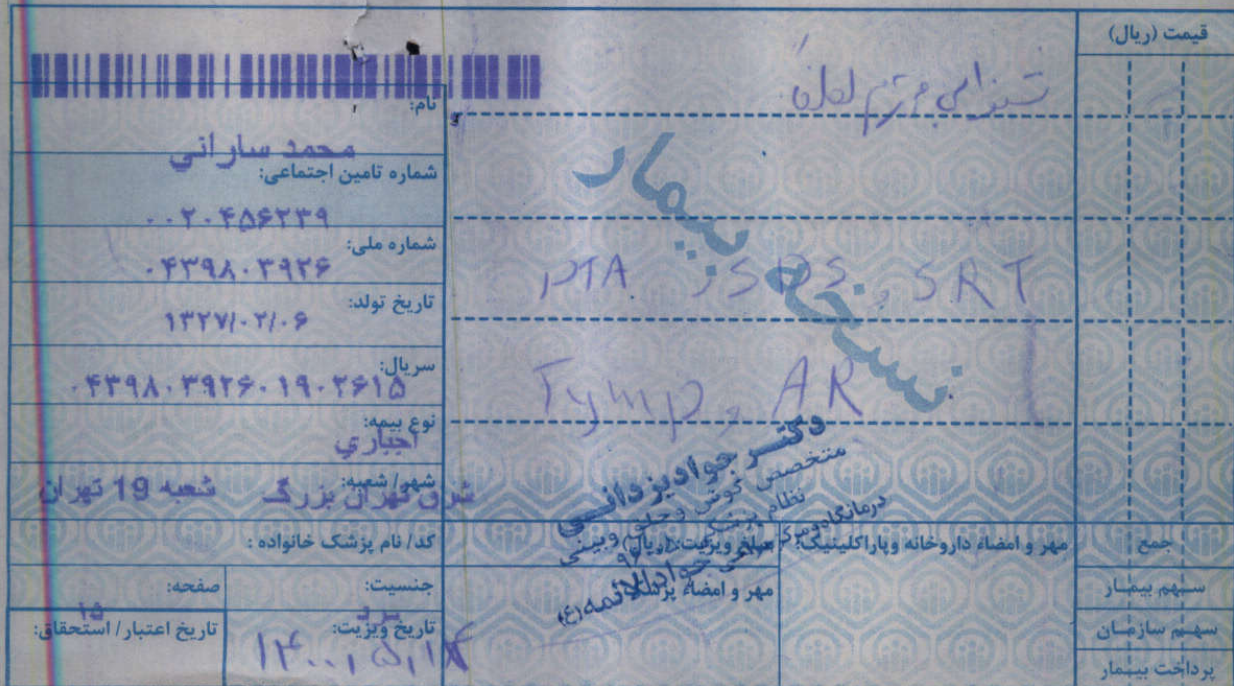 قیمت (ریال)
نام:
محمد ساراني
شماره تامین اجتماعی:
۰۰۲۰۴۵۶۲۳۹
شماره ملی:
۰۴۳۹۸۰۳۹۲۶
تاریخ تولد:
۱۳۲۷/۰۲/۰۶
سریال:
۰۴۳۹۸۰۳۹۲۶۰۱۹۰۲۶۱۵
نوع بیمه:
اجباري
شهر/ شعبه:
شرق تهران بزرگ شعبه 19 تهران
کد/ نام پزشک خانواده :
جنسیت:
مرد
صفحه:
۱۵
تاریخ ویزیت:
۱۴۰۰،۵،۱۷
تاریخ اعتبار/ استحقاق:
نسخه بیمار
PTA , SDS , SRT
Tymp , AR
دکتر جواد یزدانی
متخصص گوش و حلق و بینی
نظام پزشکی
درمانگاه
جوادالائمه (ع)
مبلغ ویزیت: (ریال)
مهر و امضاء پزشک:
مهر و امضاء داروخانه وپاراکلینیک:
جمع
سهم بیمار
سهم سازمان
پرداخت بیمار